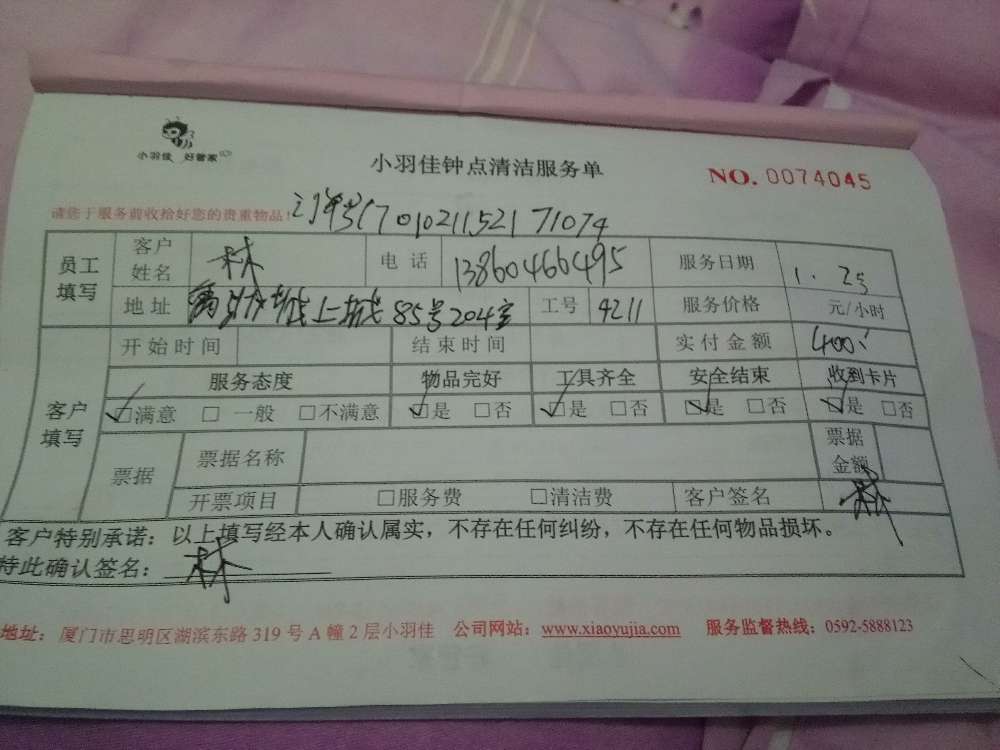 小羽佳 好管家
小羽佳钟点清洁服务单
NO. 0074045
请您于服务前收拾好您的贵重物品!
订单号17010211521 71074
员工填写 客户姓名 林 电话 13860466495 服务日期 1. 25
地址 上城85号204室 工号 4211 服务价格 元/小时
客户填写 开始时间 结束时间 实付金额 400
服务态度 物品完好 工具齐全 安全结束 收到卡片
☑满意 □一般 □不满意 ☑是 □否 ☑是 □否 ☑是 □否 ☑是 □否
票据 票据名称 票据金额
开票项目 □服务费 □清洁费 客户签名 林
客户特别承诺：以上填写经本人确认属实，不存在任何纠纷，不存在任何物品损坏。
特此确认签名：林
地址：厦门市思明区湖滨东路319号A幢2层小羽佳 公司网站：www.xiaoyujia.com 服务监督热线：0592-5888123